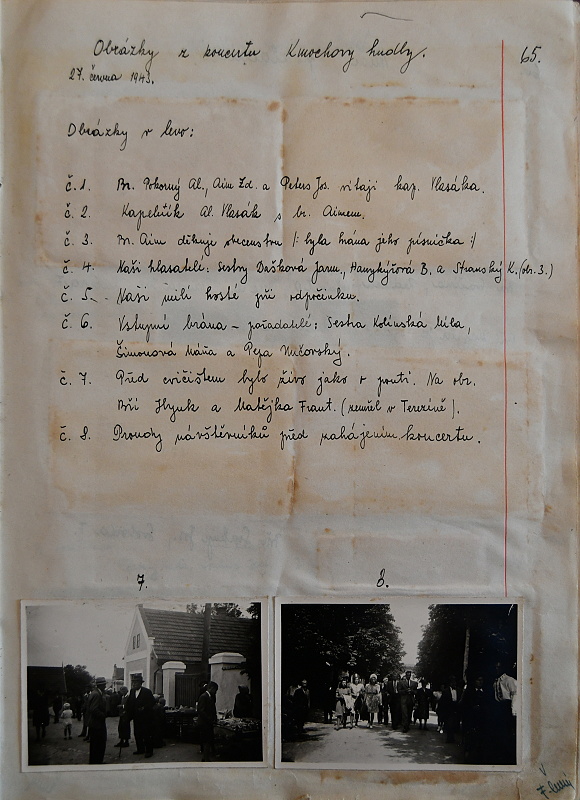 Obrázky z koncertu Kmochovy hudby.
65.
27. června 1943.
Obrázky v levo:
č. 1. Br. Pokorný Al., Aim Zd. a Peters Jos. vítají kap. Vlasáka.
č. 2. Kapelník Al. Vlasák s br. Aimem.
č. 3. Br. Aim děkuje obecenstvu /: byla hrána jeho písnička :/
č. 4. Naši hlasatelé: Sestry Dašková Jarm., B. a Stranský K. (obr. 3.)
č. 5. Naši milí hosté při odpočinku.
č. 6. Vstupní brána - pořadatelé: Sestra Kolínská Míla,
Šimonová Máňa a Pepa Nučovský.
č. 7. Před cvičištěm bylo živo jako o pouti. Na obr.
Bří Hynuk a Matějka Frant. (zemřel v Terezíně).
č. 8. Proudy návštěvníků před zahájením koncertu.
7.
8.